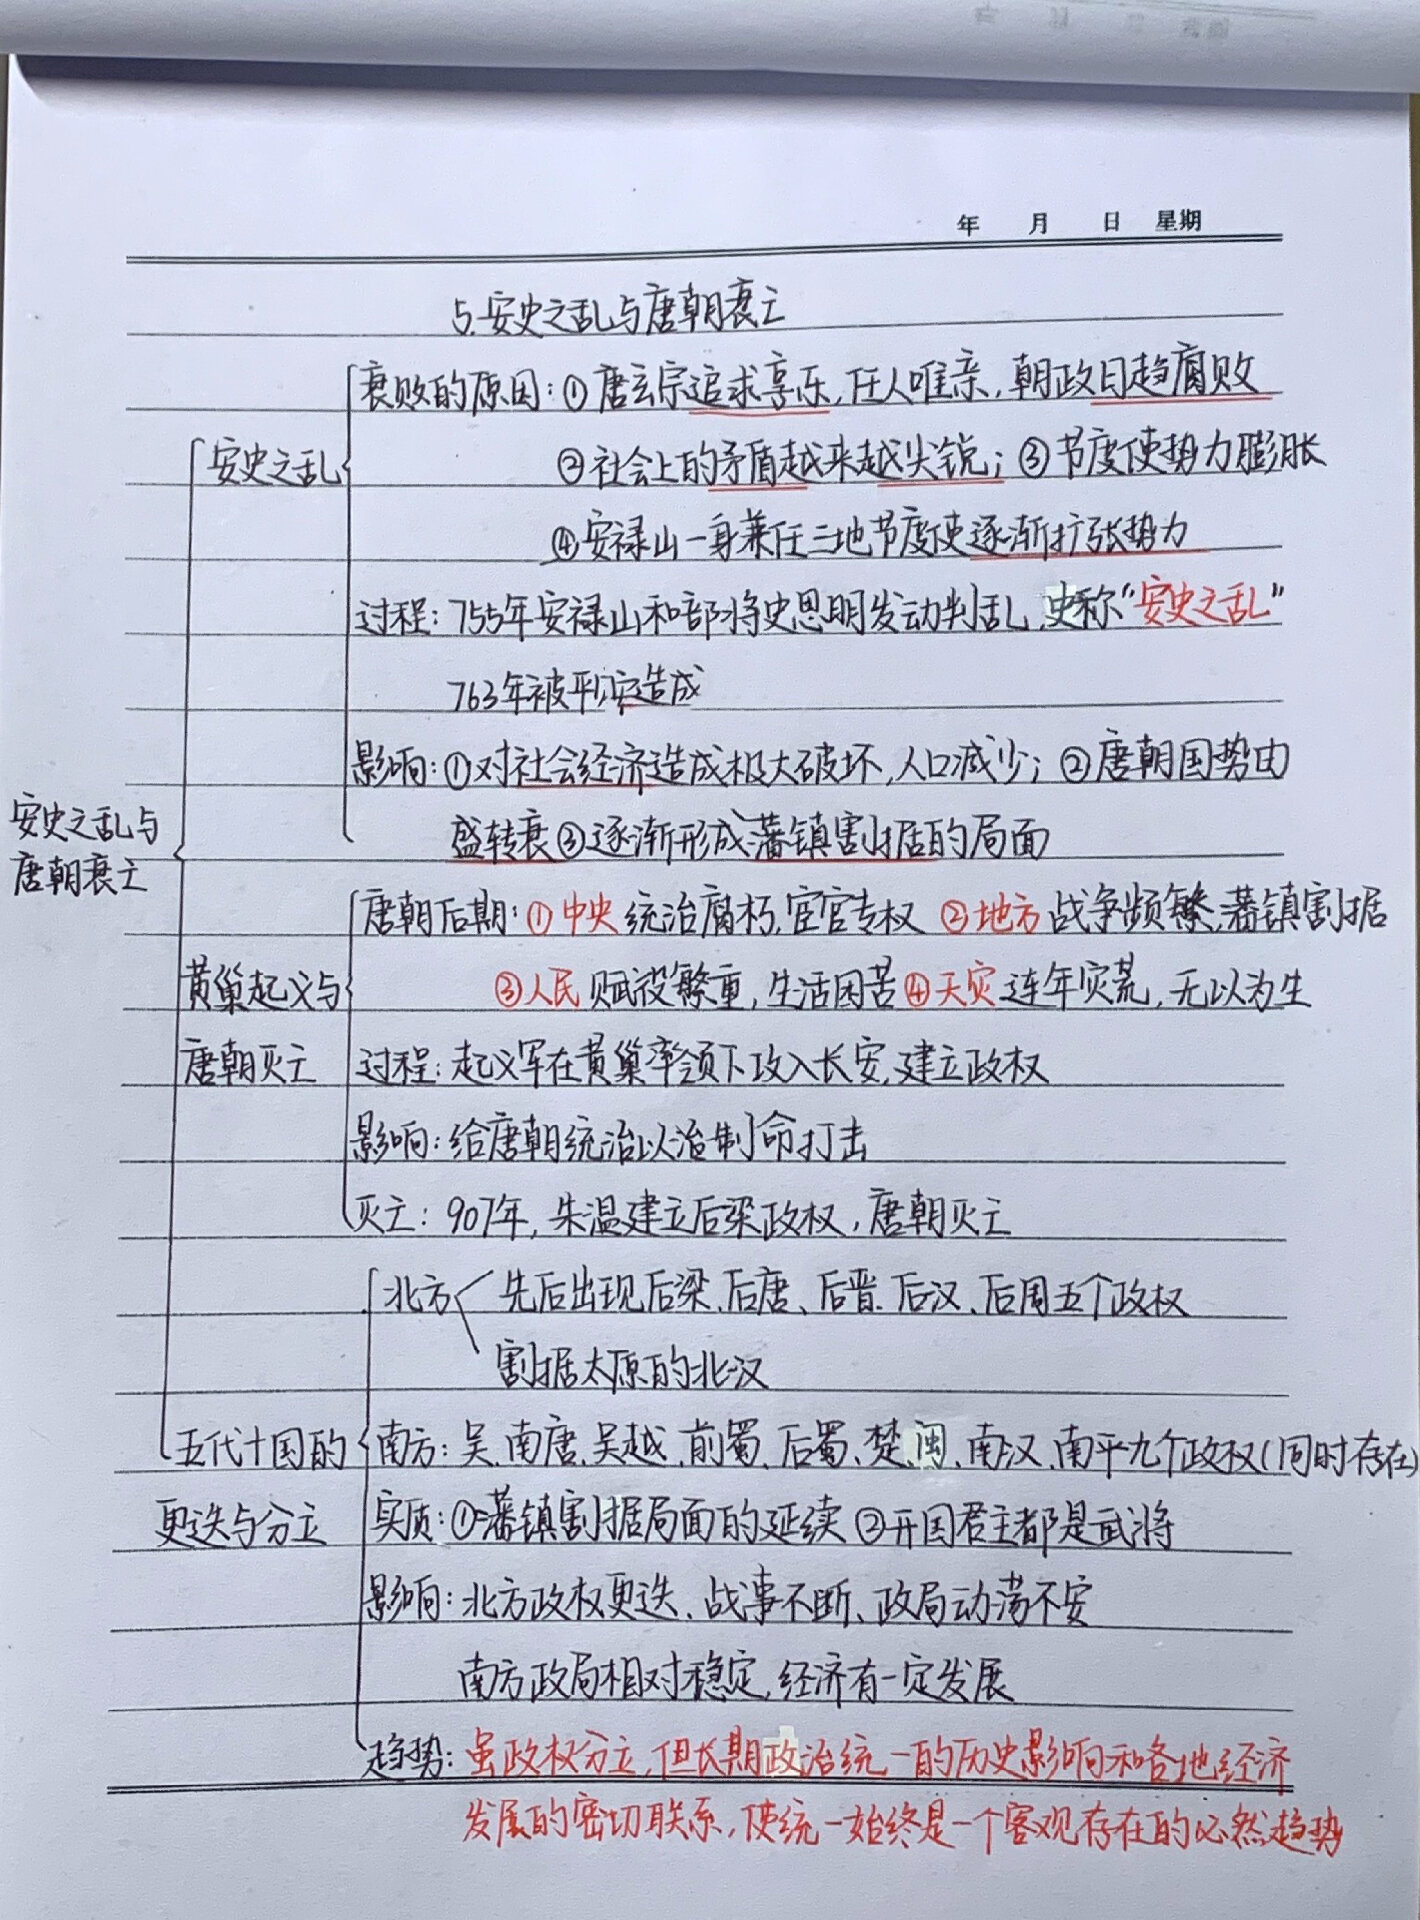 年 月 日 星期
5.安史之乱与唐朝衰亡
衰败的原因：①唐玄宗追求享乐，任人唯亲，朝政日趋腐败
安史之乱
②社会上的矛盾越来越尖锐；③节度使势力膨胀
④安禄山一身兼任三地节度使逐渐扩张势力
过程：755年安禄山和部将史思明发动判乱，史称“安史之乱”
763年被平定造成
影响：①对社会经济造成极大破坏，人口减少；②唐朝国势由
盛转衰③逐渐形成藩镇割据的局面
安史之乱与
唐朝衰亡
唐朝后期：①中央统治腐朽，宦官专权 ②地方战争频繁，藩镇割据
③人民赋役繁重，生活困苦④天灾连年灾荒，无以为生
黄巢起义与
唐朝灭亡
过程：起义军在黄巢率领下攻入长安，建立政权
影响：给唐朝统治以治制命打击
灭亡：907年，朱温建立后梁政权，唐朝灭亡
北方 先后出现后梁、后唐、后晋、后汉、后周五个政权
割据太原的北汉
五代十国的
更迭与分立
南方：吴、南唐、吴越、前蜀、后蜀、楚、闽、南汉、南平九个政权(同时存在)
实质：①藩镇割据局面的延续 ②开国君主都是武将
影响：北方政权更迭、战事不断、政局动荡不安
南方政局相对稳定，经济有一定发展
趋势：虽政权分立，但长期政治统一的历史影响和各地经济
发展的密切联系，使统一始终是一个客观存在的必然趋势